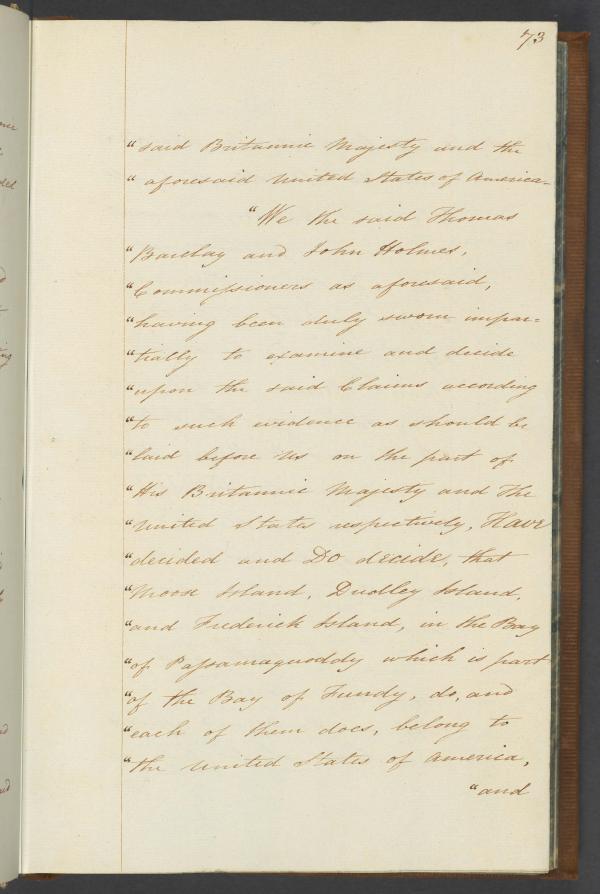 73
"said Britannic Majesty and the
" aforesaid United States of America.
"We the said Thomas
"Barclay and John Holmes,
"Commissioners as aforesaid,
"having been duly sworn impar=
"tially to examine and decide
"upon the said Claims according
"to such evidence as should be
"laid before Us on the part of
"His Britannic Majesty and The
"United States respectively, Have
"decided and Do decide, that
"Moose Island, Dudley Island,
"and Frederick Island, in the Bay
"of Passamaquoddy which is part
"of the Bay of Fundy, do, and
"each of them does, belong to
"the United States of America,
"and